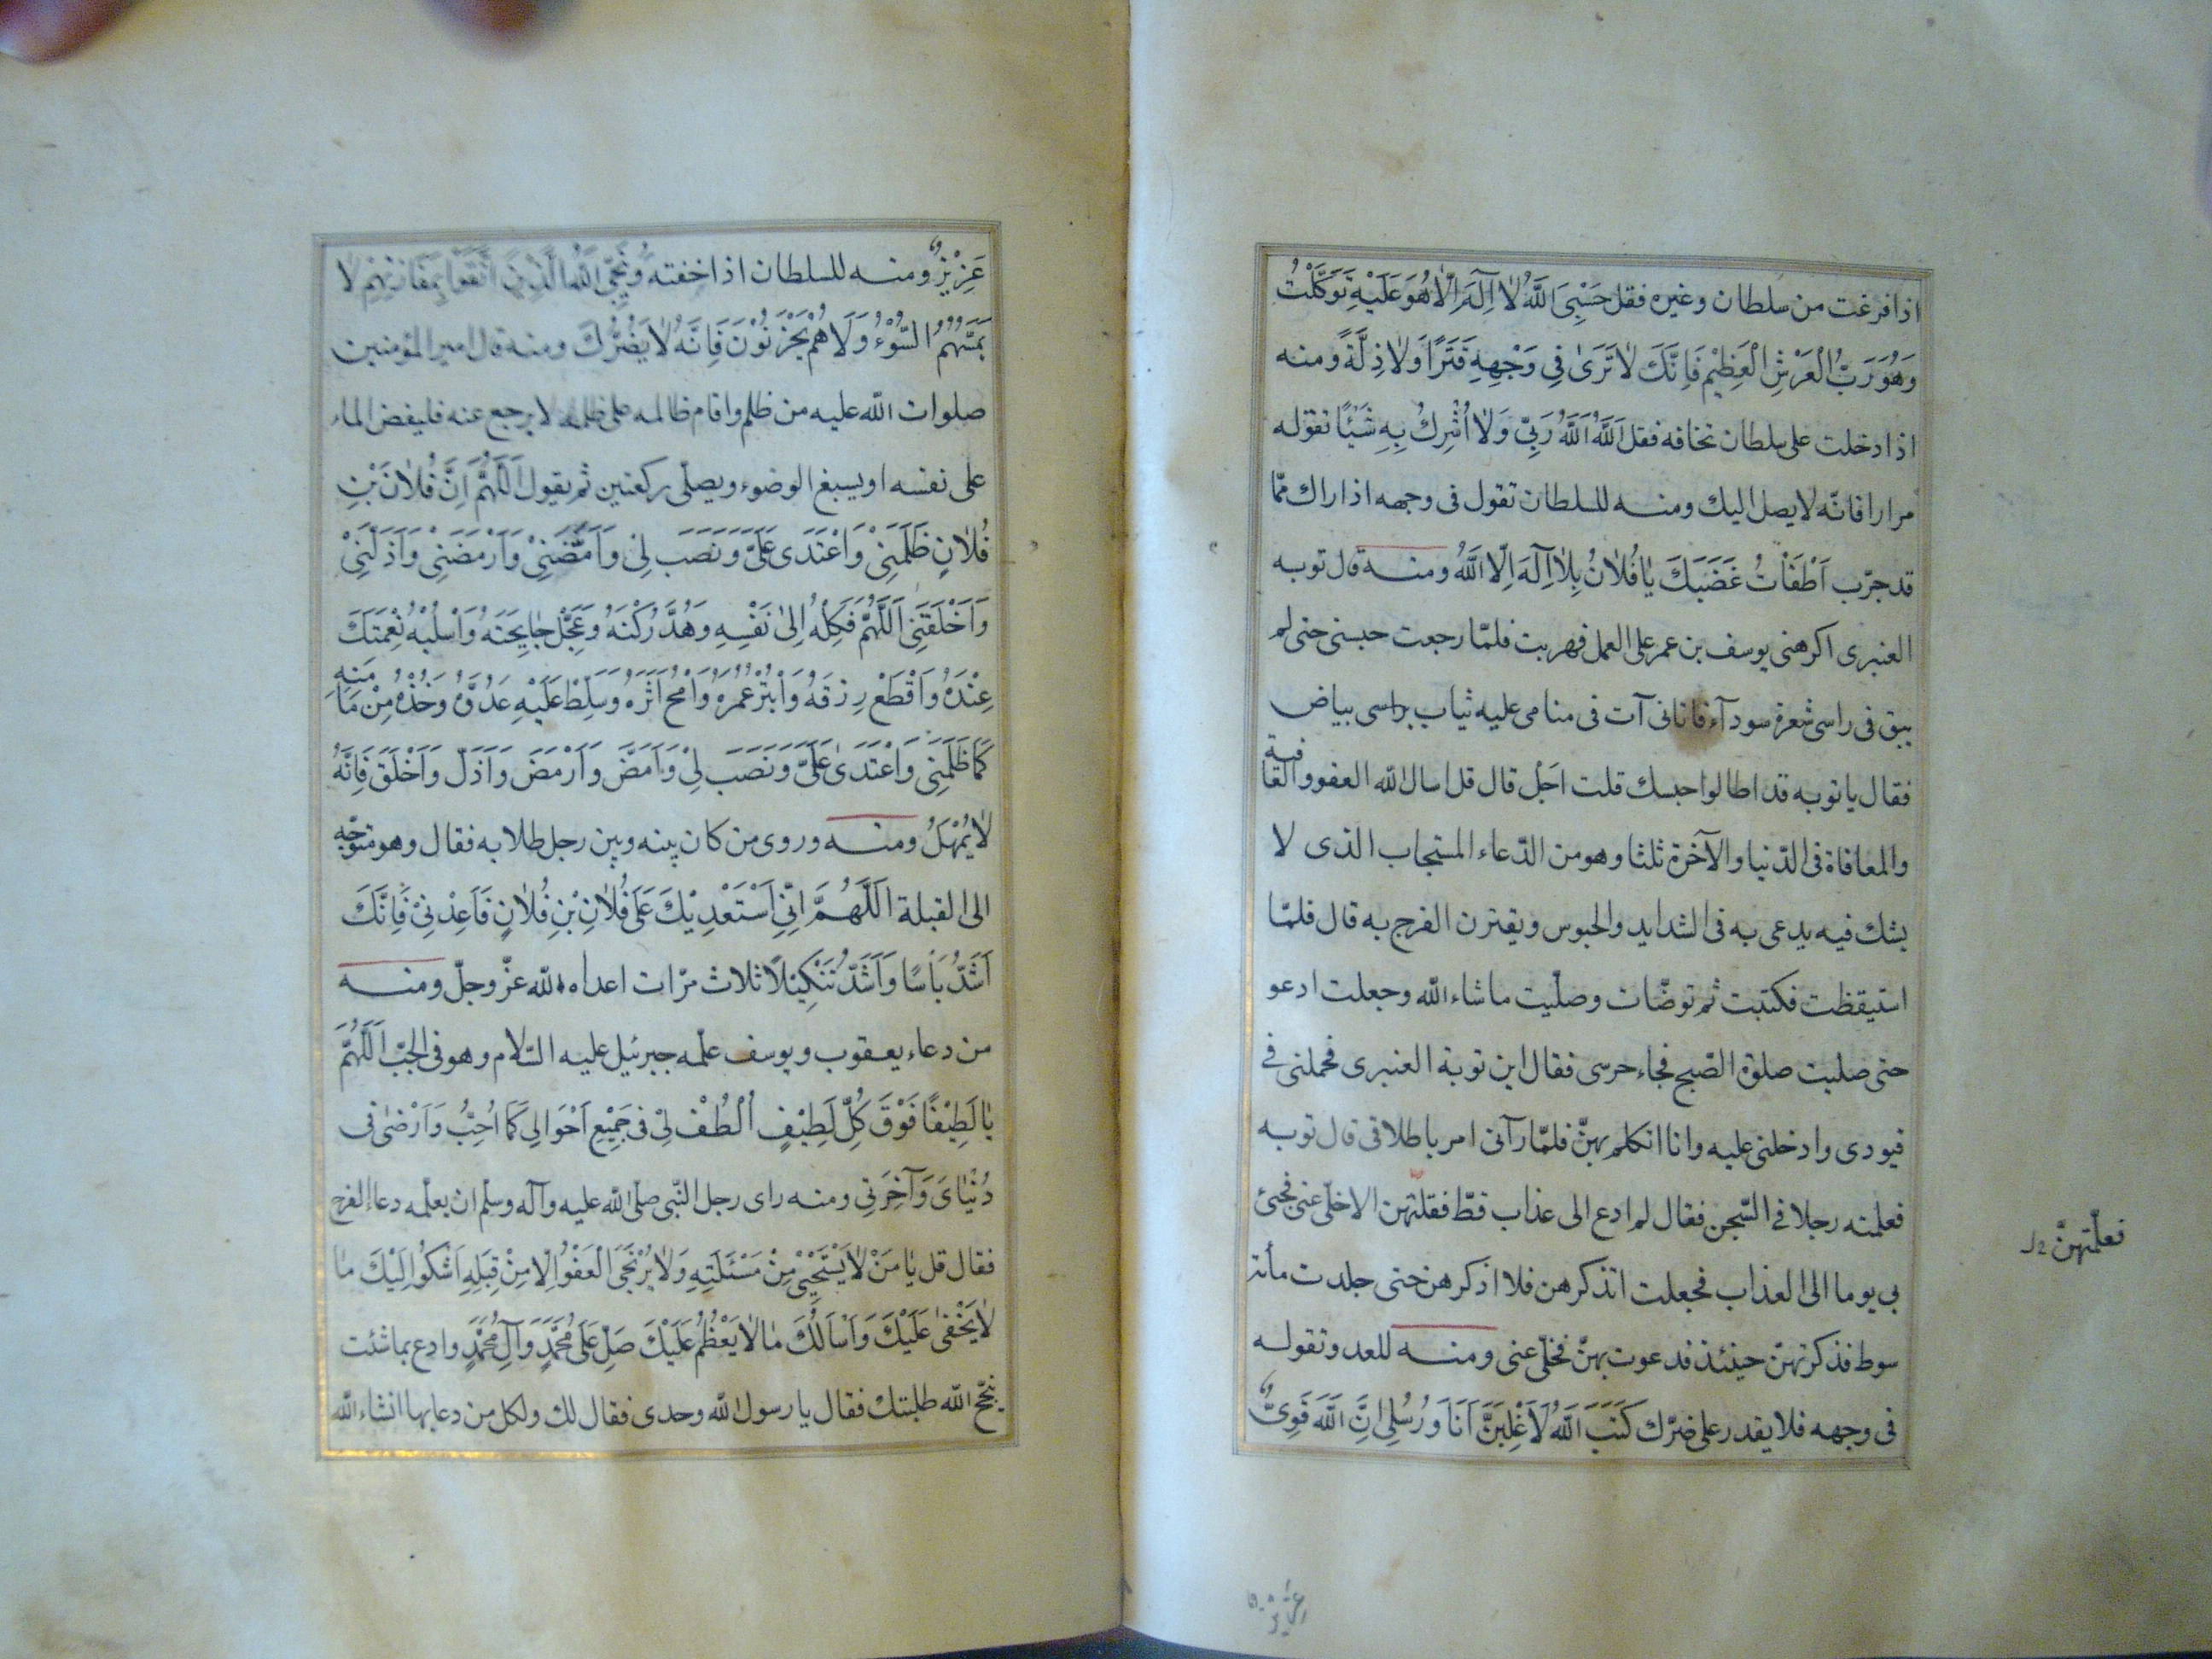 اذا فرغت من سلطان وغيره فقل حَسْبِيَ اللَّهُ لاٰ اِلٰهَ اِلاّٰ هُوَ عَلَيْهِ تَوَكَّلْتُ
وَهُوَ رَبُّ الْعَرْشِ الْعَظِيْمِ فَاِنَّكَ لاٰ تَرَىٰ فِي وَجْهِهِ قَتَرًا وَلاٰ ذِلَّةً ومنه
اذا دخلت على سلطان تخافه فقل اَللَّهُ اَللَّهُ رَبِّي وَلاٰ اُشْرِكُ بِهِ شَيْئًا تقوله
مرارا فانّه لا يصل اليك ومنه للسلطان تقول فى وجهه اذا راك ممّا
قد جرّب اَطْفَأْتُ غَضَبَكَ يٰا فُلاٰنُ بِلاٰ اِلٰهَ اِلاَّ اللَّهُ ومنه قال توبه
العنبرى اكرهنى يوسف بن عمر على العمل فهربت فلمّا رجعت حبسنى حتى لم
يبق فى راسى شعرة سودآء فاتانى آت فى منامى عليه ثياب براسى بياض
فقال يا توبه قد اطالوا حبسك قلت اجَلْ قال قل اسال الله العفو والعافية
والمعافاة فى الدّنيا والآخرة ثلثا وهو من الدّعاء المستجاب الذى لا
يشك فيه يدعى به فى الشدايد والحبوس ويقترن الفرج به قال فلمّا
استيقظت فكتبت ثم توضّات وصلّيت ما شاء الله وجعلت ادعو
حتى صليت صلوة الصّبح فجاء حرسى فقال اين توبة العنبرى فحملنى فى
قيودى وادخلنى عليه وانا اتكلم بهنّ فلمّا رآنى امر باطلاقى قال توبه
فعلمته رجلا فى السّجن فقال لم ادع الى عذاب قطّ فقلتهن الا خلّى عنى فجئ
فعلّمتهنَّ
بى يوما الى العذاب فجعلت اتذكرهن فلا اذكرهن حتى جلدت مأة
سوط فذكرتهنّ حينئذ فدعوت بهنَّ فخلّى عنى ومنه للعدو تقوله
فى وجهه فلا يقدر على ضرّك كَتَبَ اللَّهُ لَاَغْلِبَنَّ اَنَا وَرُسُلِى اِنَّ اللَّهَ قَوِىٌّ
عزيز
عَزِيْزٌ ومنه للسلطان اذا خفته وَيُنَجِّى اللَّهُ الَّذِيْنَ اتَّقَوْا بِمَفَازَتِهِمْ لاٰ
يَمَسُّهُمُ السُّوْءُ وَلاَ هُمْ يَحْزَنُوْنَ فَاِنَّهُ لاٰ يَضُرُّكَ ومنه قال امير المؤمنين
صلوات الله عليه من ظلم واقام ظالمه على ظلمه لا يرجع عنه فليفض الماء
على نفسه او يسبغ الوضوء ويصلّى ركعتين ثم يقول اَللَّهُمَّ اِنَّ فُلاٰنَ بْنَ
فُلاٰنٍ ظَلَمَنِىْ وَاعْتَدَى عَلَىَّ وَنَصَبَ لِىْ وَاَمَضَّنِىْ وَاَرْمَضَنِىْ وَاَذَلَّنِىْ
وَاَخْلَقَنِى اَللَّهُمَّ فَكِلْهُ اِلىٰ نَفْسِهِ وَهُدَّ رُكْنَهُ وَعَجِّلْ جٰايِحَتَهُ وَاسْلُبْهُ نِعْمَتَكَ
عِنْدَهُ وَاقْطَعْ رِزْقَهُ وَابْتُرْ عُمْرَهُ وَامْحُ اَثَرَهُ وَسَلِّطْ عَلَيْهِ عَدُوَّهُ وَخُذْهُ مِنْ مَأْمَنِهِ
كَمَا ظَلَمَنِى وَاعْتَدَىٰ عَلَىَّ وَنَصَبَ لِىْ وَاَمَضَّ وَاَرْمَضَ وَاَذَلَّ وَاَخْلَقَ فَاِنَّهُ
لاٰ يُمْهَلُ ومنه وروى من كان بينه وبين رجل طلابه فقال وهو متوجّه
الى القبلة اَللَّهُمَّ اِنِّى اَسْتَعْدِيْكَ عَلَى فُلاٰنِ بْنِ فُلاٰنٍ فَاَعِدْنِىْ فَاِنَّكَ
اَشَدُّ بَأْسًا وَاَشَدُّ تَنْكِيْلاً ثلاث مرّات اعداه الله عزّ وجلّ ومنه
من دعاء يعقوب ويوسف علّمه جبرئيل عليه السّلام وهو فى الجبّ اَللَّهُمَّ
يٰا لَطِيْفًا فَوْقَ كُلِّ لَطِيْفٍ اُلْطُفْ لِىْ فى جَمِيْعِ اَحْوَالِى كَمَا اُحِبُّ وَاَرْضىٰ فى
دُنْيٰاىَ وَآخِرَتِى ومنه راى رجل النّبى صلّى الله عليه وآله وسلّم ان يعلّمه دعاء الفرج
فقال قل يٰا مَنْ لاٰ يُسْتَحْيىٰ مِنْ مَسْئَلَتِهِ وَلاٰ يُرْتَجَى الْعَفْوُ اِلاّ مِنْ قِبَلِهِ اَشْكُو اِلَيْكَ مٰا
لاٰ يَخْفىٰ عَلَيْكَ وَاَسْاَلُكَ مٰا لاٰ يَعْظُمُ عَلَيْكَ صَلِّ عَلَى مُحَمَّدٍ وَآلِ مُحَمَّدٍ وادع بما شئت
ينجّح الله طلبتك فقال يا رسول الله وحدى فقال لك ولكل من دعا بها انشاء الله